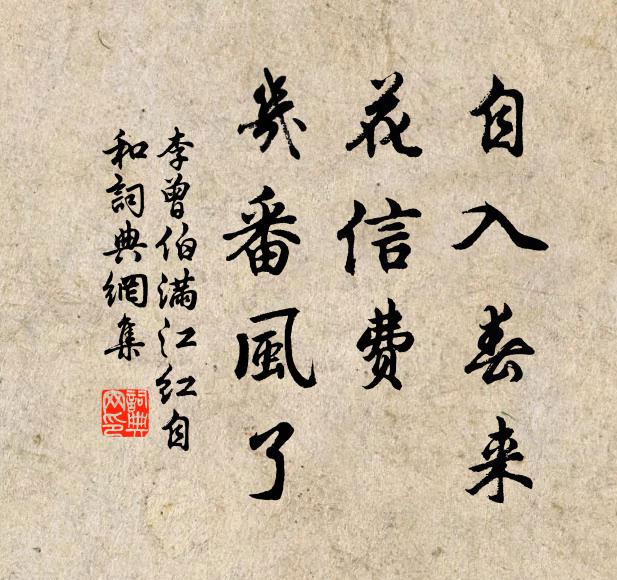 自入春来
花信費
幾番風了
李曾伯满江红自
和詞典網集
詞典
网印